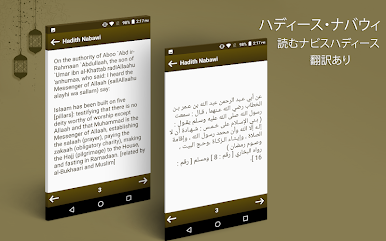 2:17 PM
Hadith Nabawi
On the authority of Aboo `Abd ir-
Rahmaan `Abdullaah, the son of
`Umar ibn al-Khattab radiAllaahu
'anhumaa, who said: I heard the
Messenger of Allaah (sallAllaahu
alayhi wa sallam) say:
Islaam has been built on five
[pillars]: testifying that there is no
deity worthy of worship except
Allaah and that Muhammad is the
Messenger of Allaah, establishing
the salaah (prayer), paying the
zakaah (obligatory charity), making
the Hajj (pilgrimage) to the House,
and fasting in Ramadaan. [related by
al-Bukhaari and Muslim]
3
2:17 PM
Hadith Nabawi
عن أبي عبد الرحمن عبد الله بن عمر بن
الخطاب رضي الله عنهما ، قال : سمعت
رسول الله صلى الله عليه وسلم يقول :
( بني الإسلام على خمس : شهادة أن لا
إله إلا الله وأن محمد رسول الله ، وإقامة
الصلاة ، وإيتاء الزكاة وحج البيت ،
وصوم رمضان )
رواه البخاري [ رقم : 8 ] ومسلم [ رقم :
16 ].
3
ハディース・ナバウィ
読むナビスハディース
翻訳あり